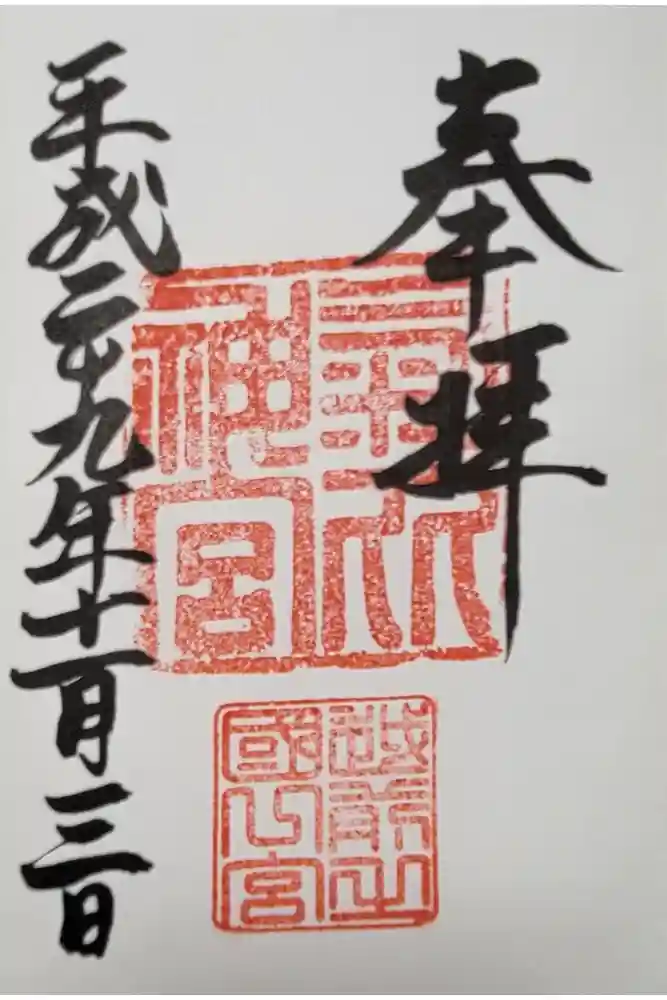 奉拝
氣比
神宮
越前之
國
宮
平成二十九年十一月三日